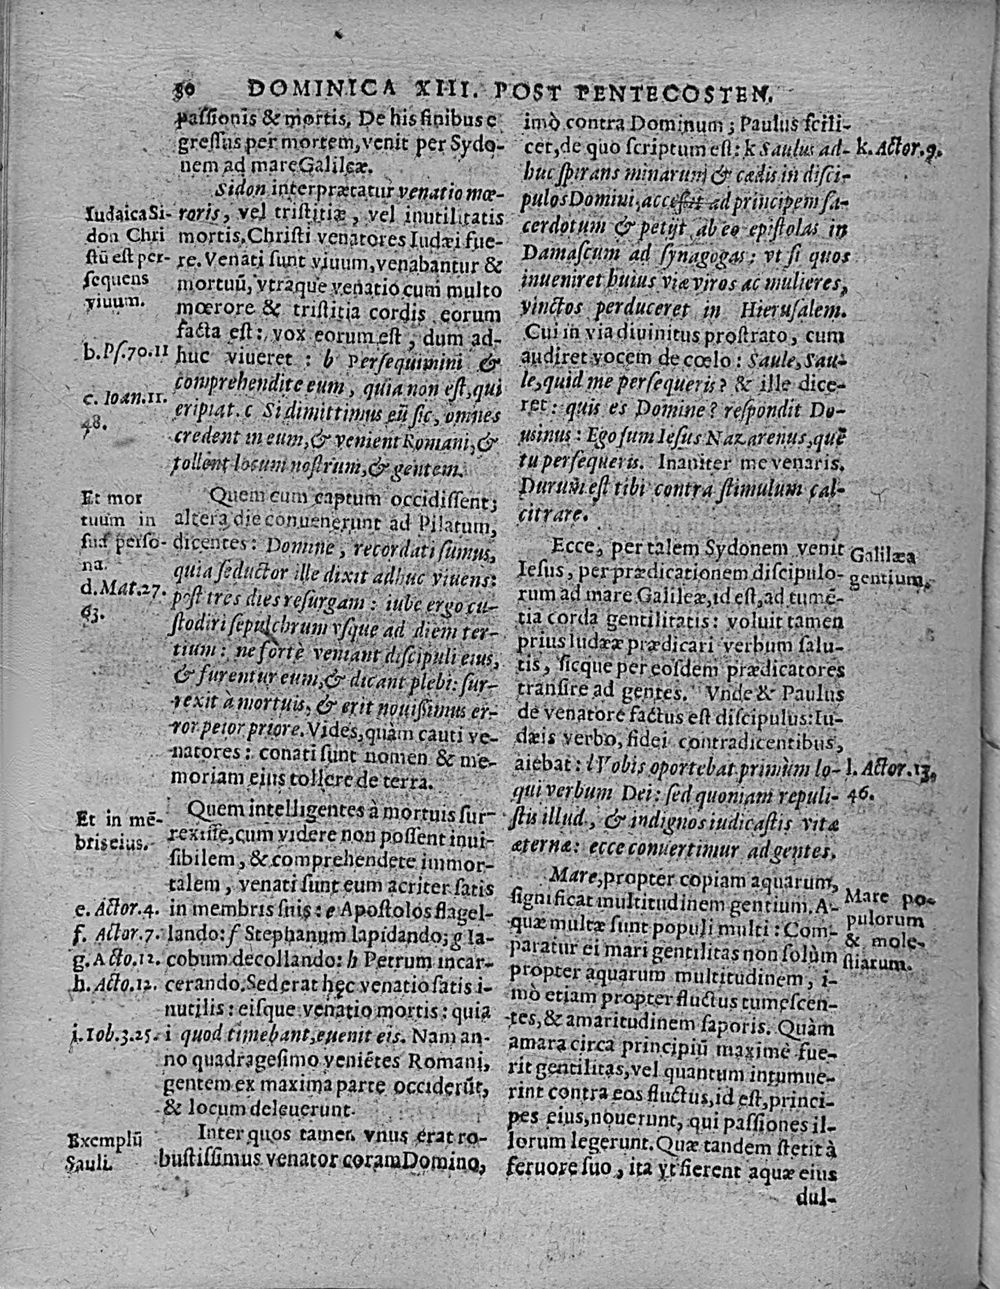 50 DOMINICA XIII. POST PENTECOSTEN.
passionis & mortis. De his finibus e
gressus per mortem, venit per Sydo-
nem ad mare Galileæ.
Sidon interprætatur venatio mœ-
roris, vel tristitiæ, vel inutilitatis
mortis. Christi venatores Iudæi fue-
re. Venati sunt viuum, venabantur &
mortuũ, vtraque venatio cum multo
mœrore & tristitia cordis eorum
facta est: vox eorum est, dum ad-
huc viueret : b Persequimini &
comprehendite eum, quia non est, qui
eripiat. c Si dimittimus eũ sic, omnes
credent in eum, & venient Romani, &
tollent locum nostrum, & gentem.
Quem cum captum occidissent;
altera die conuenerunt ad Pilatum,
dicentes: Domine, recordati sumus,
quia seductor ille dixit adhuc viuens:
post tres dies resurgam : iube ergo cu-
stodiri sepulchrum vsque ad diem ter-
tium : ne fortè veniant discipuli eius,
& furentur eum, & dicant plebi: sur-
rexit à mortuis, & erit nouissimus er-
ror peior priore. Vides, quàm cauti ve-
natores : conati sunt nomen & me-
moriam eius tollere de terra.
Quem intelligentes à mortuis sur-
rexisse, cum videre non possent inui-
sibilem, & comprehendete immor-
talem, venati sunt eum acriter satis
in membris suis: e Apostolos flagel-
lando: f Stephanum lapidando; g Ia-
cobum decollando: h Petrum incar-
cerando. Sed erat hęc venatio satis i-
nutilis : eisque venatio mortis : quia
i quod timebant, euenit eis. Nam an-
no quadragesimo veniẽtes Romani,
gentem ex maxima parte occiderũt,
& locum deleuerunt.
Inter quos tamen vnus erat ro-
bustissimus venator coram Domino,
Iudaica Si-
don Chri
stũ est per-
sequens
viuum.
b. Ps. 70. 11
c. Ioan. 11.
48.
Et mor
tuum in
sua perso-
na.
d. Mat. 27.
63.
Et in mẽ-
bris eius.
e. Actor. 4.
f. Actor. 7.
g. Acto. 12.
h. Acto. 12.
i. Iob. 3. 25.
Exemplũ
Sauli.
imò contra Dominum ; Paulus scili-
cet, de quo scriptum est: k Saulus ad-
huc spirans minarum & cædis in disci-
pulos Domini, accessit ad principem sa-
cerdotum & petijt ab eo epistolas in
Damascum ad synagogas: vt si quos
inueniret huius viæ viros ac mulieres,
vinctos perduceret in Hierusalem.
Cui in via diuinitus prostrato, cum
audiret vocem de cœlo : Saule, Sau-
le, quid me persequeris? & ille dice-
ret : quis es Domine? respondit Do-
minus: Ego sum Iesus Nazarenus, quẽ
tu persequeris. Inaniter me venaris.
Durum est tibi contra stimulum cal-
citrare.
Ecce, per talem Sydonem venit
Iesus, per prædicationem discipulo-
rum ad mare Galileæ, id est, ad tumẽ-
tia corda gentilitatis: voluit tamen
prius Iudææ prædicari verbum salu-
tis, sicque per eosdem prædicatores
transire ad gentes. Vnde & Paulus
de venatore factus est discipulus: Iu-
dæis verbo, fidei contradicentibus,
aiebat : l Vobis oportebat primùm lo-
qui verbum Dei: sed quoniam repuli-
stis illud, & indignos iudicastis vitæ
æternæ: ecce conuertimur ad gentes.
Mare, propter copiam aquarum,
significat multitudinem gentium. A-
quæ multæ sunt populi multi : Com-
paratur ei mari gentilitas non solùm
propter aquarum multitudinem, i-
mò etiam propter fluctus tumescen-
tes, & amaritudinem saporis. Quàm
amara circa principiũ maximè fue-
rit gentilitas, vel quantum intumue-
rint contra eos fluctus, id est, princi-
pes eius, nouerunt, qui passiones il-
lorum legerunt. Quæ tandem stetit à
feruore suo, ita vt fierent aquæ eius
dul-
k. Actor. 9.
Galilæa
gentium.
l. Actor. 13.
46.
Mare po-
pulorum
& mole-
stiarum.